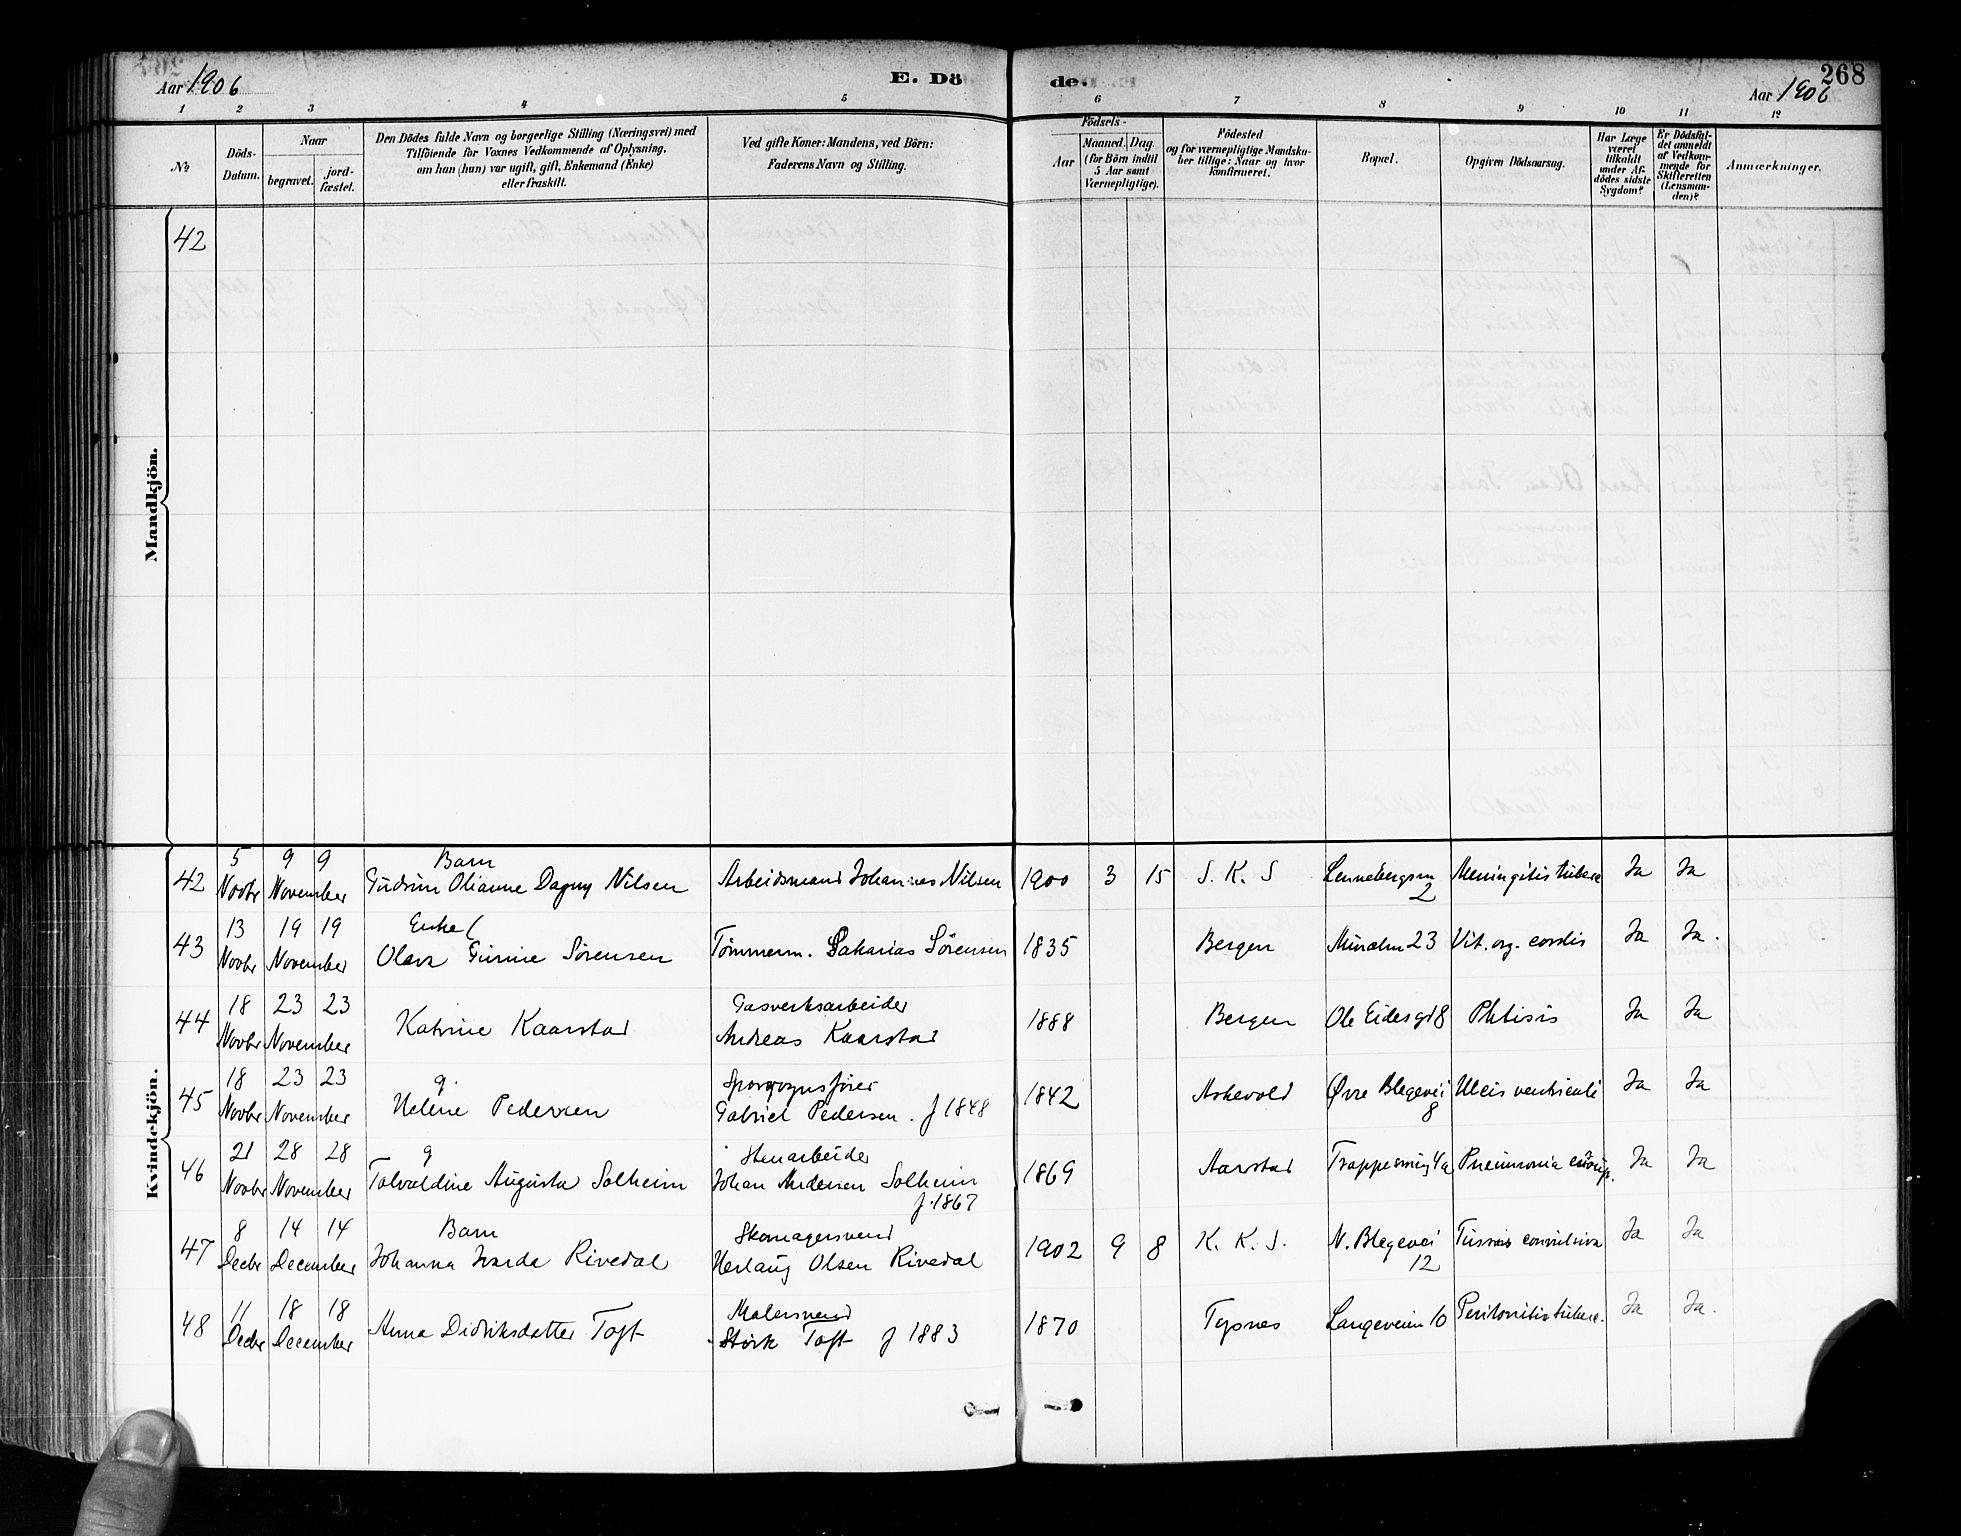 Aar 1906
E. Dö
de.
268
Aar 1906
1 2 3 4 5 6 7 8 9 10 11 12
No
Döds-Datum.
Naar
begravet.
jord-fæstet.
Den Dödes fulde Navn og borgerlige Stilling (Næringsvei) med
Tilföiende for Voxnes Vedkommende af Oplysning,
om han (hun) var ugift, gift, Enkemand (Enke)
eller fraskilt.
Ved gifte Koner: Mandens, ved Börn:
Faderens Navn og Stilling.
Födsels-
Aar
Maaned. Dag.
(for Börn indtil
5 Aar samt
Værnepligtige).
Födested
og for værnepligtige Mandska-
ber tillige: Naar og hvor
konfirmeret.
Bopæl.
Opgiven Dödsaarsag.
Har Læge
været
tilkaldt
under Af-
dödes sidste
Sygdom?
Er Dödsfal-
det anmeldt
af Vedkom-
mende for
Skifteretten
(Lensman-
den)?
Anmærkninger.
Mandkjön.
42
Kvindekjön.
42 5 Novbr 9 9 November Barn Gudrun Olianne Dagny Nilsen Arbeidsmand Johannes Nilsen 1900 3 15 S. K. S Lennebergsm 2 Meningitis tuberc Ja Ja
43 13 Novbr 19 19 November Enke Olava Gurine Sörensen Tømmerm. Sakarias Sörensen 1835 Bergen Muralm 23 Vit. org. cordis Ja Ja.
44 18 Novbr 23 23 November Katrine Kaarstad Gasverksarbeider Andreas Kaarstad 1888 Bergen Ole Eides gd 8 Phtisis Ja Ja
45 18 Novbr 23 23 November g. Helene Pedersen Sporvognsfører Gabriel Pedersen. f 1848 1842 Askevold Øvre Blegevei 8 Ulcis ventriculi Ja Ja
46 21 Novbr 28 28 November g Tolvaldine Augusta Solheim Stenarbeider Johan Andersen Solheim f. 1867 1869 Aarstad Trappesmug 4a Pneumonia croup. Ja Ja
47 8 Decbr 14 14 December Barn Johanna Rivedal Skomagersvend Herlaug Olsen Rivedal 1902 9 8 K. K. S. N. Blegevei 12 Tussis convulsiva Ja Ja
48 11 Decbr 18 18 December Anna Didriksdatter Toft Malersvend Störk Toft f 1883 1870 Tysnes Langeveien 10 Peritonitis tuberc. Ja Ja.